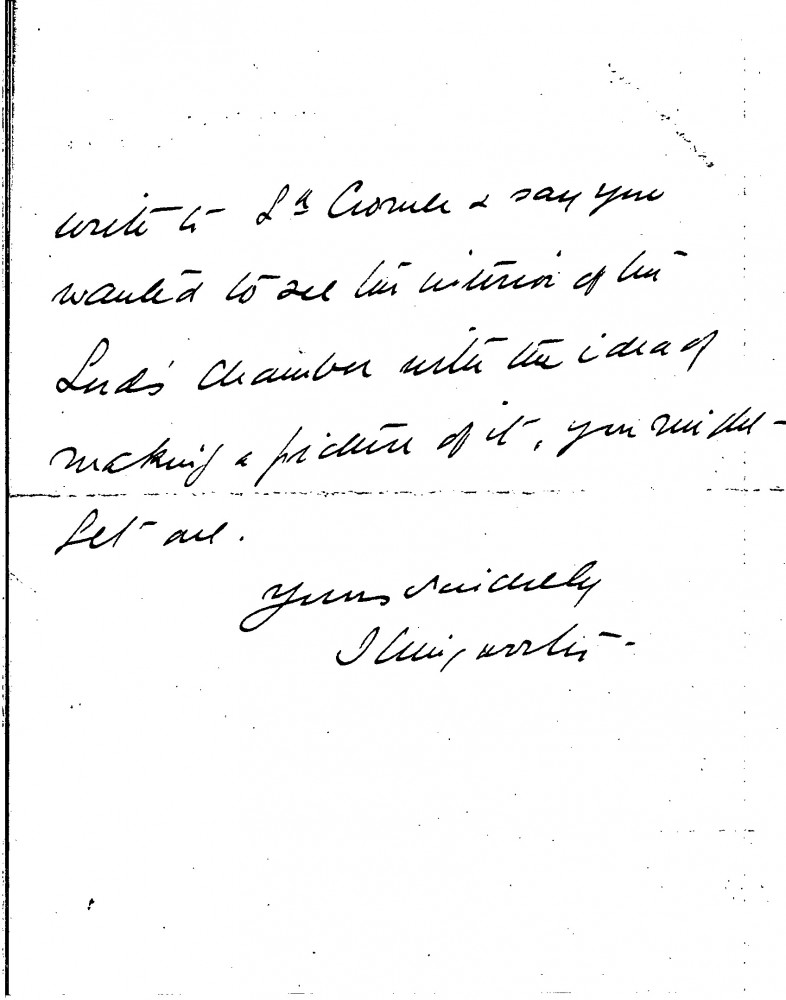 write to Ld & say you
wanted to see the interior of the
Lord's Chamber with the idea of
making a picture of it, you might
get one.
Yours sincerely
Illingworth